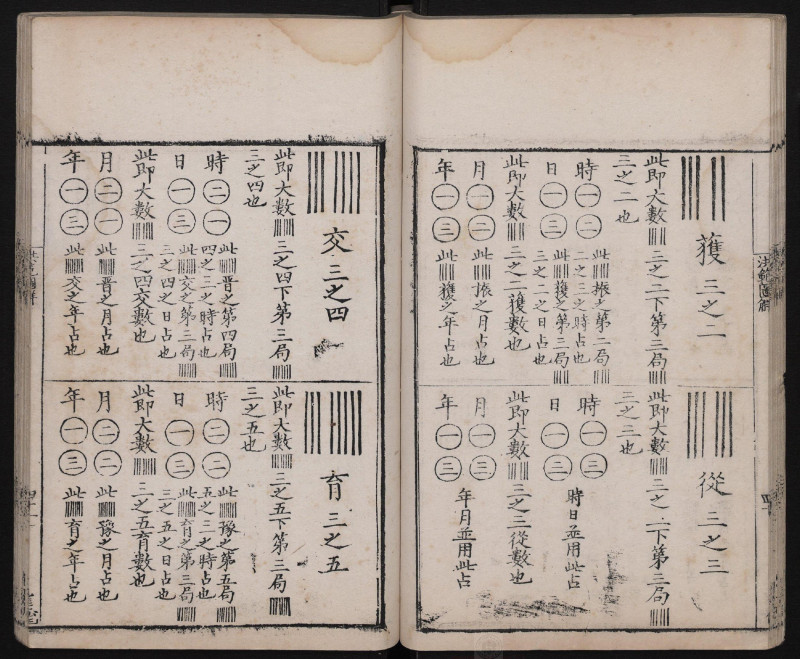 獲 三之二
此即大數 三之二下第三局
三之二也
時 一 二 此 振之第二局
二之三之時占也
日 一 三 此 獲之第三局
三之二之日占也
此即大數 三之二獲數也
月 一 二 此 振之月占也
年 一 三 此 獲之年占也
從 三之三
此即大數 三之三下第三局
三之三也
時 一 三
日 一 三
時日並用此占
此即大數 三之三從數也
月 一 三
年 一 三
年月並用此占
交 三之四
此即大數 三之四下第三局
三之四也
時 二 一 此 晉之第四局
四之三之時占也
日 一 三 此 交之第三局
三之四之日占也
此即大數 三之四交數也
月 二 一 此 晉之月占也
年 一 三 此 交之年占也
育 三之五
此即大數 三之五下第三局
三之五也
時 二 二 此 豫之第五局
五之三之時占也
日 一 三 此 育之第三局
三之五之日占也
此即大數 三之五育數也
月 二 二 此 豫之月占也
年 一 三 此 育之年占也